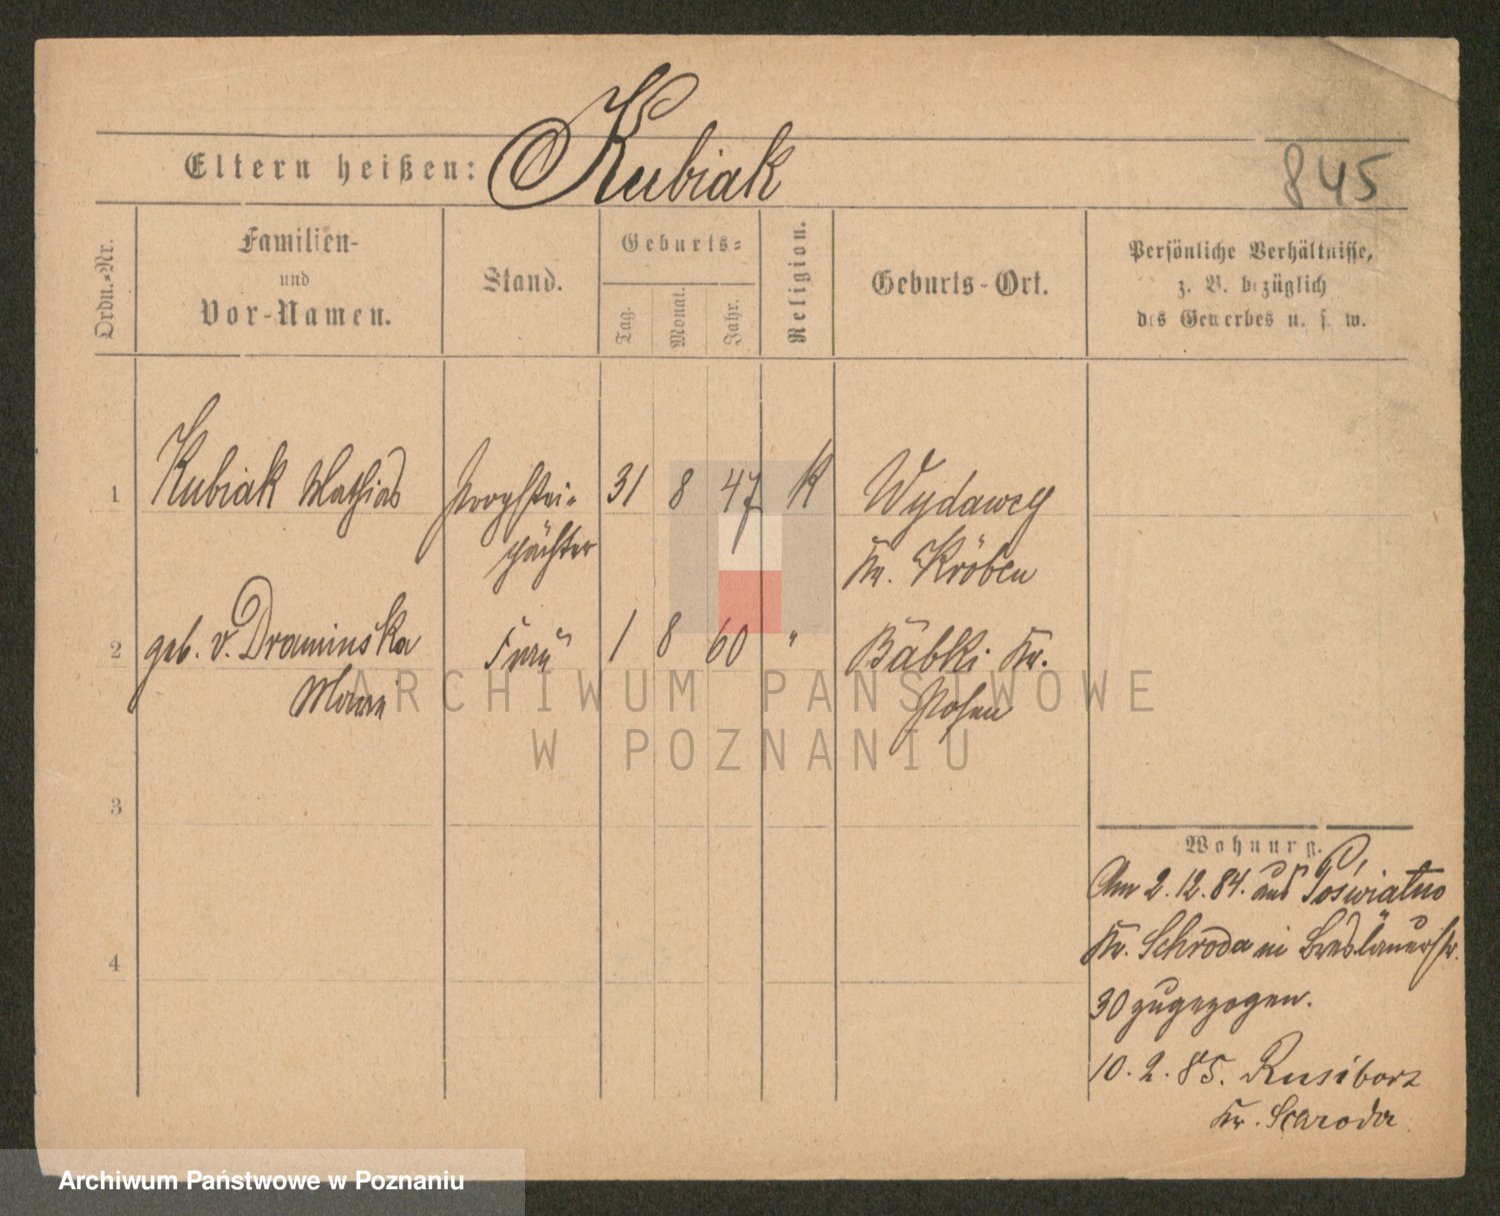 Eltern heißen: Kubiak
845
Ordn.-Nr.
Familien-
und
Vor-Namen.
Stand.
Geburts-
Tag.
Monat.
Jahr.
Religion.
Geburts-Ort.
Persönliche Verhältnisse,
z. B. bezüglich
des Gewerbes u. s. w.
1 Kubiak Mathias Propstei- 31 8 47 K Wydawcy
pächter Kr. Kröben
2 geb. v. Draminska Frau 1 8 60 " Babki Kr.
Marie Posen
3
4
Wohnung.
Am 2.12.84. aus Poświatno
Kr. Schroda in Breslauerstr.
30 zugezogen.
10.2.85. Rusiborz
Kr. Scaroda
ARCHIWUM PAŃSTWOWE
W POZNANIU
Archiwum Państwowe w Poznaniu